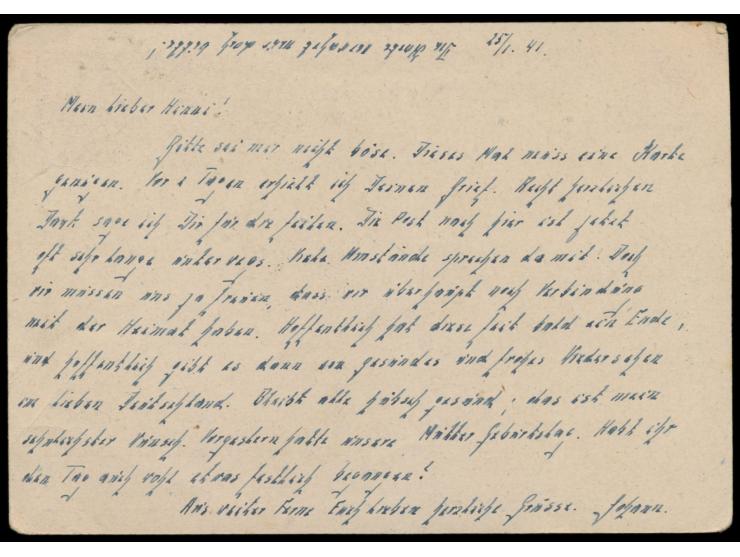 25/1. 41.
Mein lieber Henni!
Bitte sei mir nicht böse. Dieses Mal muss eine Karte
genügen. Vor 2 Tagen erhielt ich Deinen Brief. Recht herzlichen
Dank sage ich Dir für die Zeilen. Die Post nach hier ist jetzt
oft sehr lange unterwegs. Umstände sprechen da mit! Doch
wir müssen uns ja freuen, dass wir überhaupt noch Verbindung
mit der Heimat haben. Hoffentlich hat diese Zeit bald ein Ende,
und hoffentlich gibt es dann ein gesundes und frohes Wiedersehen
im lieben Deutschland. Bleibt alle hübsch gesund, das ist mein
sehnlichster Wunsch. Vorgestern hatte unsere Mutter Geburtstag. Habt ihr
den Tag auch wohl etwas festlich begangen?
Aus weiter Ferne Euch lieben herzliche Grüsse. Johann.